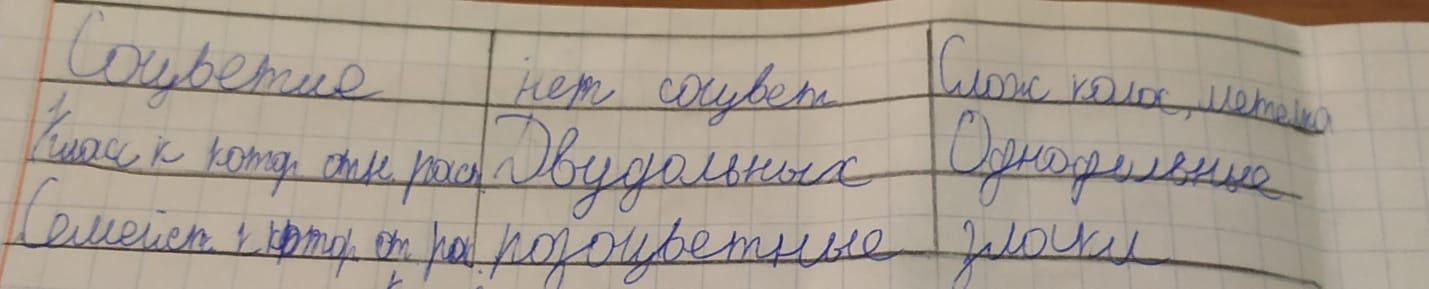 Соцветие нет соцвет Слож колос, метелка
Класс к котор. отн. раст. Двудольных Однодольные
Семейст. к котор. от рас. розоцветные злаки